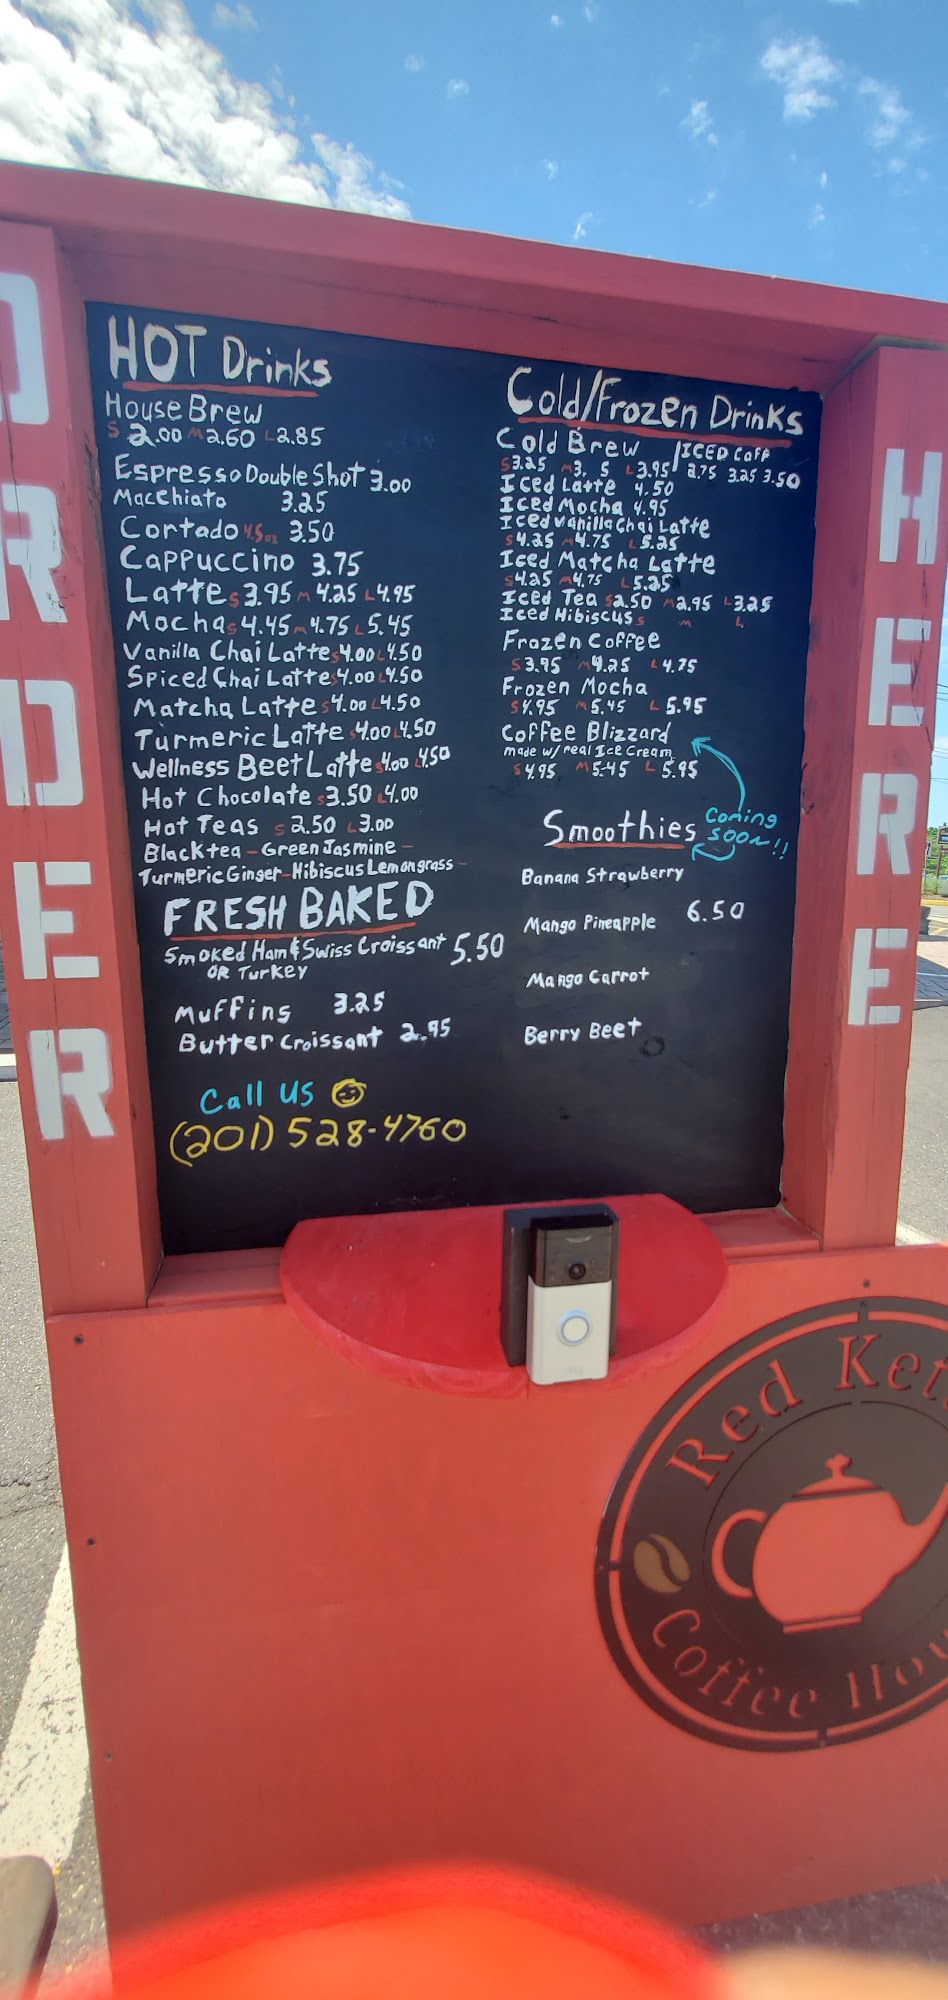 ORDER
HERE
HOT Drinks
House Brew
S 2.00 M 2.60 L 2.85
Espresso Double Shot 3.00
Macchiato 3.25
Cortado 4.5oz 3.50
Cappuccino 3.75
Latte S 3.95 M 4.25 L 4.95
Mocha S 4.45 M 4.75 L 5.45
Vanilla Chai Latte S 4.00 L 4.50
Spiced Chai Latte S 4.00 L 4.50
Matcha Latte S 4.00 L 4.50
Turmeric Latte S 4.00 L 4.50
Wellness Beet Latte S 4.00 L 4.50
Hot Chocolate S 3.50 L 4.00
Hot Teas S 2.50 L 3.00
Black tea - Green Jasmine -
Turmeric Ginger - Hibiscus Lemongrass -
FRESH BAKED
Smoked Ham & Swiss Croissant 5.50
OR Turkey
Muffins 3.25
Butter Croissant 2.95
Call US
(201) 528-4760
Cold/Frozen Drinks
Cold Brew
S 3.25 M 3. 5 L 3.95
ICED Coff
2.75 3.25 3.50
Iced Latte 4.50
Iced Mocha 4.95
Iced Vanilla Chai Latte
S 4.25 M 4.75 L 5.25
Iced Matcha Latte
S 4.25 M 4.75 L 5.25
Iced Tea S 2.50 M 2.95 L 3.25
Iced Hibiscus S M L
Frozen Coffee
S 3.95 M 4.25 L 4.75
Frozen Mocha
S 4.95 M 5.45 L 5.95
Coffee Blizzard
made w/ real Ice Cream
S 4.95 M 5.45 L 5.95
Coming
SOON!!
Smoothies
Banana Strawberry
Mango Pineapple 6.50
Mango Carrot
Berry Beet
Red Ket
Coffee Hou